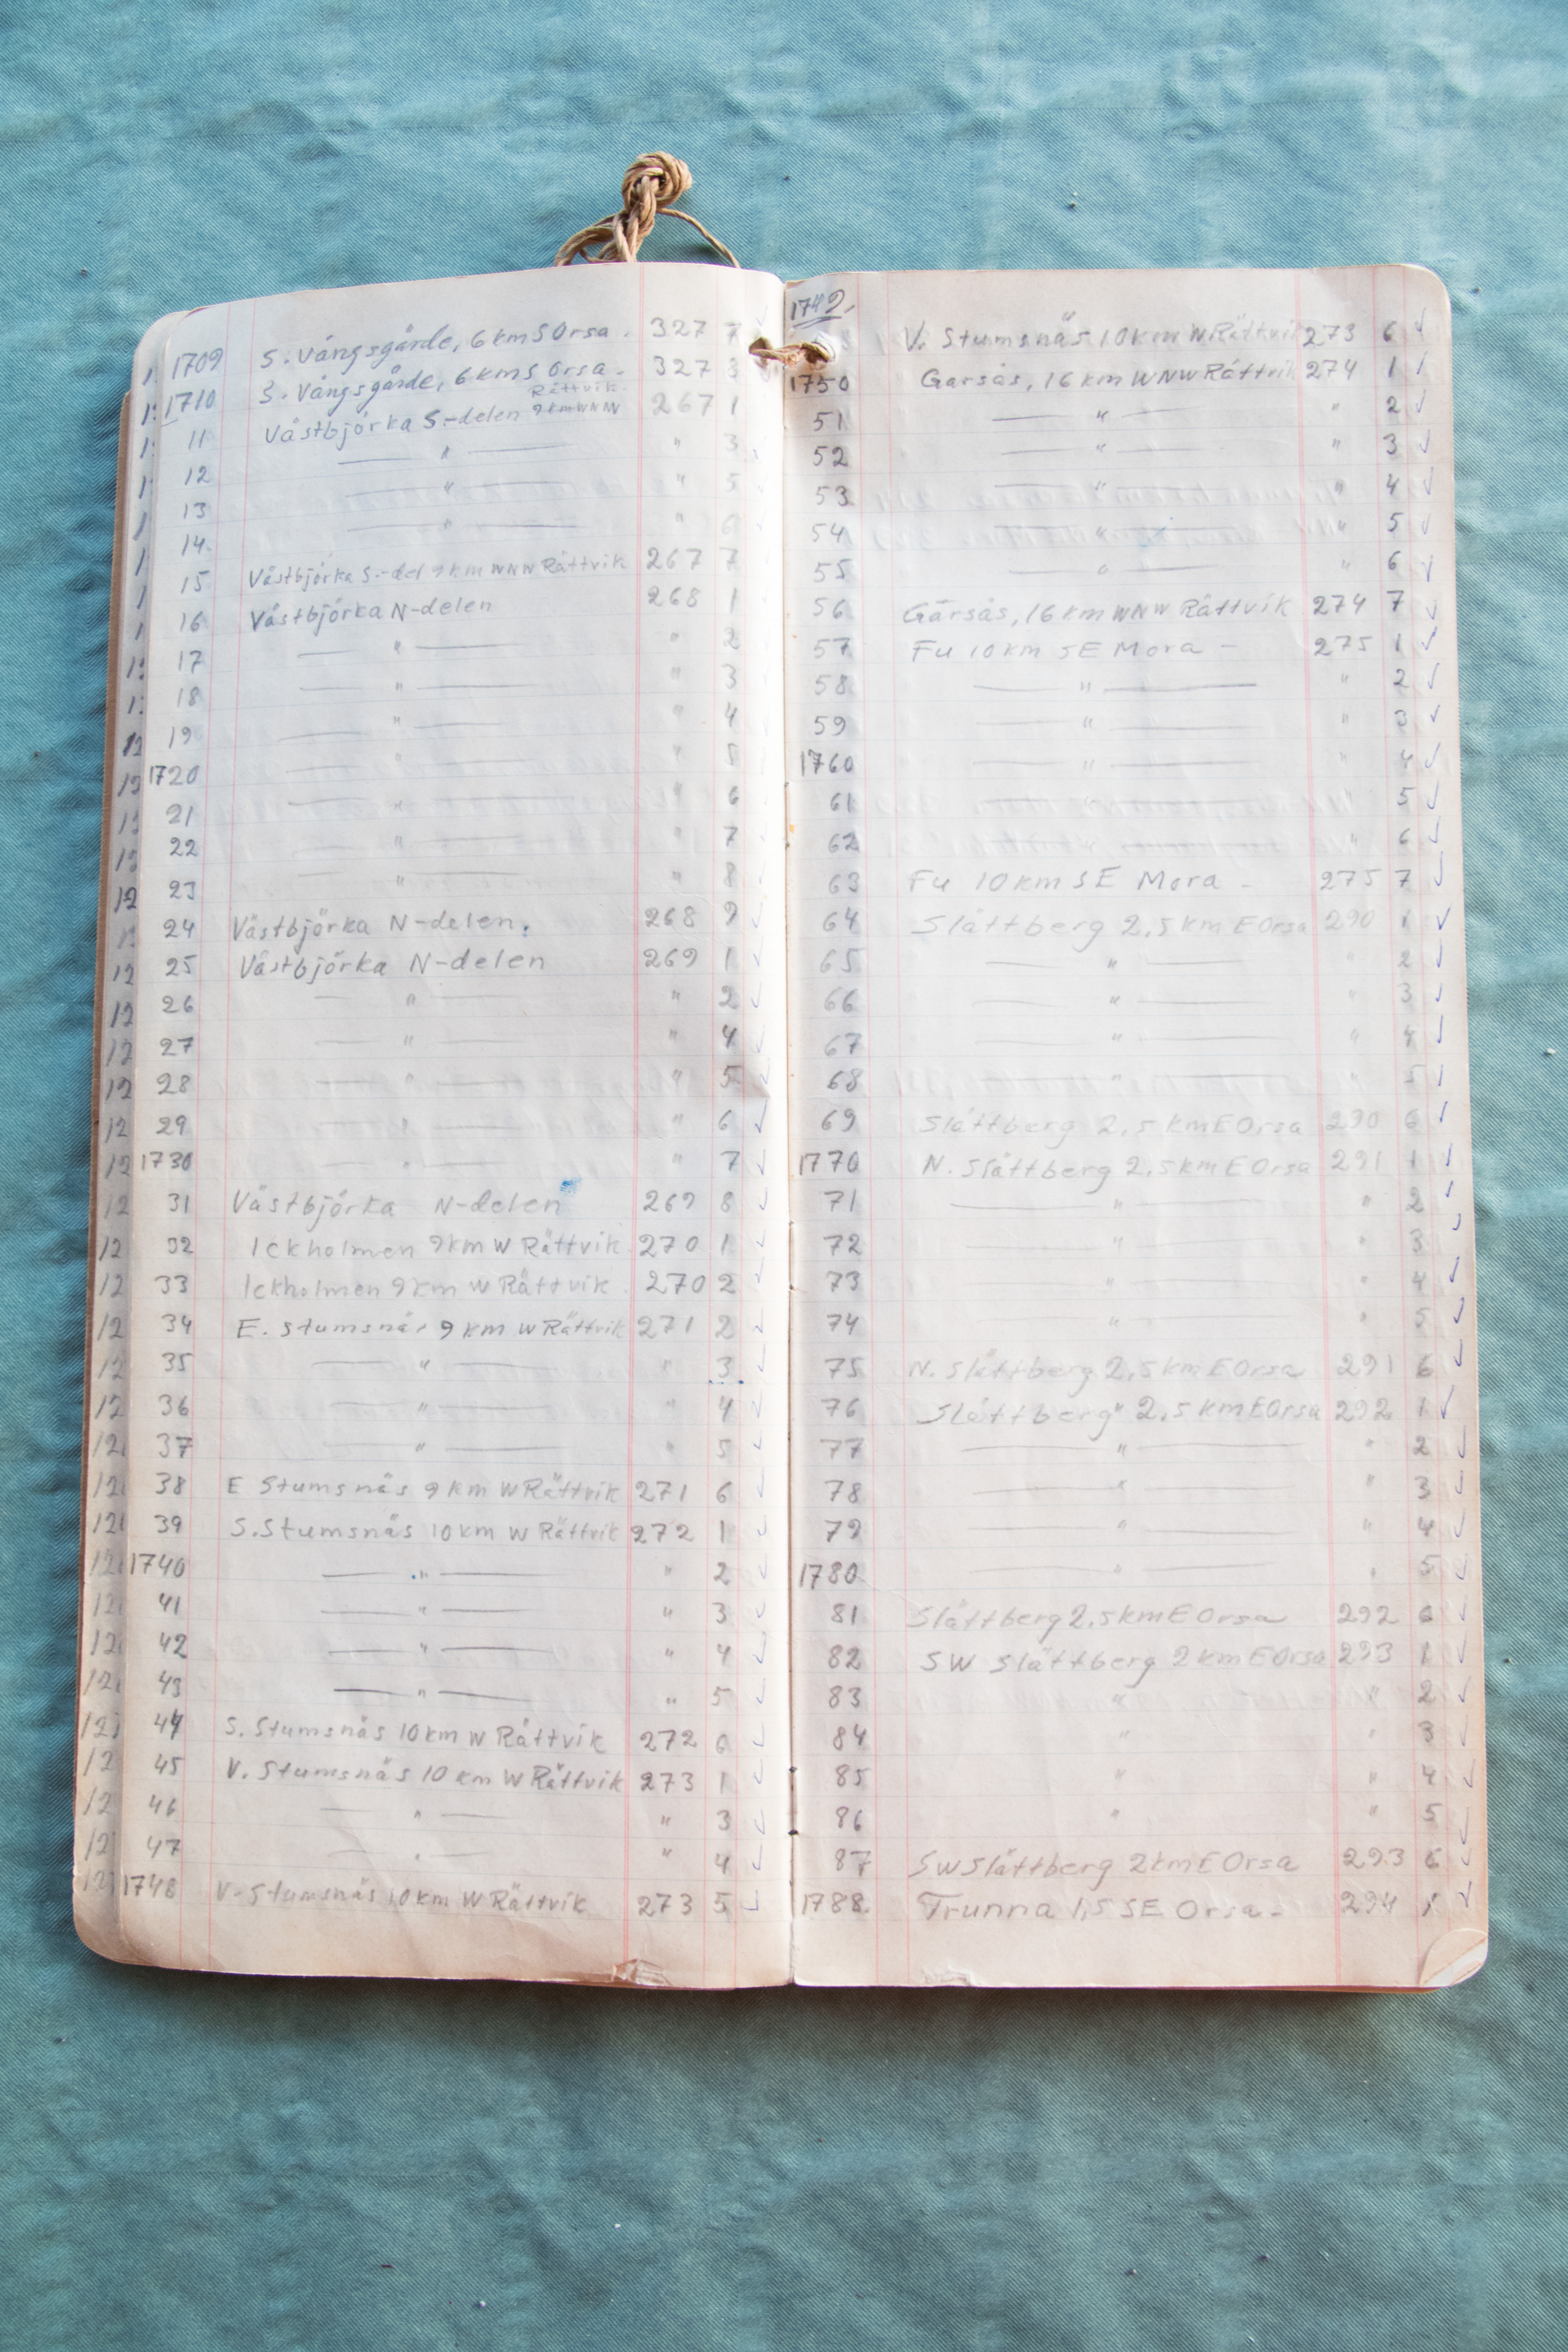 1709 S. Vångsgärde, 6 km S Orsa. 327 7
1710 S. Vångsgärde, 6 km S Orsa. 327 3
Rättvik.
11 Västbjörka S.-delen 9 km WNW 267 1
12 — " — " 3
13 — " — " 5
14. — " — " 6
15 Västbjörka S.-del 9 km WNW Rättvik 267 7
16 Västbjörka N-delen 268 1
17 — " — " 2
18 — " — " 3
19 — " — " 4
1720 — " — " 5
21 — " — " 6
22 — " — " 7
23 — " — " 8
24 Västbjörka N-delen. 268 9 ✓
25 Västbjörka N-delen 269 1 ✓
26 — " — " 2 ✓
27 — " — " 4 ✓
28 — " — " 5 ✓
29 — " — " 6 ✓
1730 — " — " 7 ✓
31 Västbjörka N-delen 269 8 ✓
32 Ickholmen 9 km W Rättvik 270 1 ✓
33 Ickholmen 9 km W Rättvik. 270 2 ✓
34 E. Stumsnäs 9 km W Rättvik 271 2 ✓
35 — " — " 3 ✓
36 — " — " 4 ✓
37 — " — " 5 ✓
38 E Stumsnäs 9 km W Rättvik 271 6 ✓
39 S. Stumsnäs 10 km W Rättvik 272 1 ✓
1740 — " — " 2 ✓
41 — " — " 3 ✓
42 — " — " 4 ✓
43 — " — " 5 ✓
44 S. Stumsnäs 10 km W Rättvik 272 6 ✓
45 V. Stumsnäs 10 km W Rättvik 273 1 ✓
46 — " — " 3 ✓
47 — " — " 4 ✓
1748 V. Stumsnäs 10 km W Rättvik 273 5 ✓
1749. V. Stumsnäs 10 km W Rättvik 273 6 ✓
1750 Garsås, 16 km WNW Rättvik 274 1 ✓
51 — " — " 2 ✓
52 — " — " 3 ✓
53 — " — " 4 ✓
54 — " — " 5 ✓
55 — " — " 6 ✓
56 Garsås, 16 km WNW Rättvik 274 7 ✓
57 Fu 10 km SE Mora - 275 1 ✓
58 — " — " 2 ✓
59 — " — " 3 ✓
1760 — " — " 4 ✓
61 — " — " 5 ✓
62 — " — " 6 ✓
63 Fu 10 km SE Mora - 275 7 ✓
64 Slättberg 2,5 km E Orsa 290 1 ✓
65 — " — " 2 ✓
66 — " — " 3 ✓
67 — " — " 4 ✓
68 — " — " 5 ✓
69 Slättberg 2,5 km E Orsa 290 6 ✓
1770 N. Slättberg 2,5 km E Orsa 291 1 ✓
71 — " — " 2 ✓
72 — " — " 3 ✓
73 — " — " 4 ✓
74 — " — " 5 ✓
75 N. Slättberg 2,5 km E Orsa 291 6 ✓
76 Slättberg" 2,5 km E Orsa 292 1 ✓
77 — " — " 2 ✓
78 — " — " 3 ✓
79 — " — " 4 ✓
1780 — " — " 5 ✓
81 Slättberg 2,5 km E Orsa 292 6 ✓
82 SW Slättberg 2 km E Orsa 293 1 ✓
83 " " 2 ✓
84 " " 3 ✓
85 " " 4 ✓
86 " " 5 ✓
87 SW Slättberg 2 km E Orsa 293 6 ✓
1788. Trunna 1,5 SE Orsa - 294 1 ✓